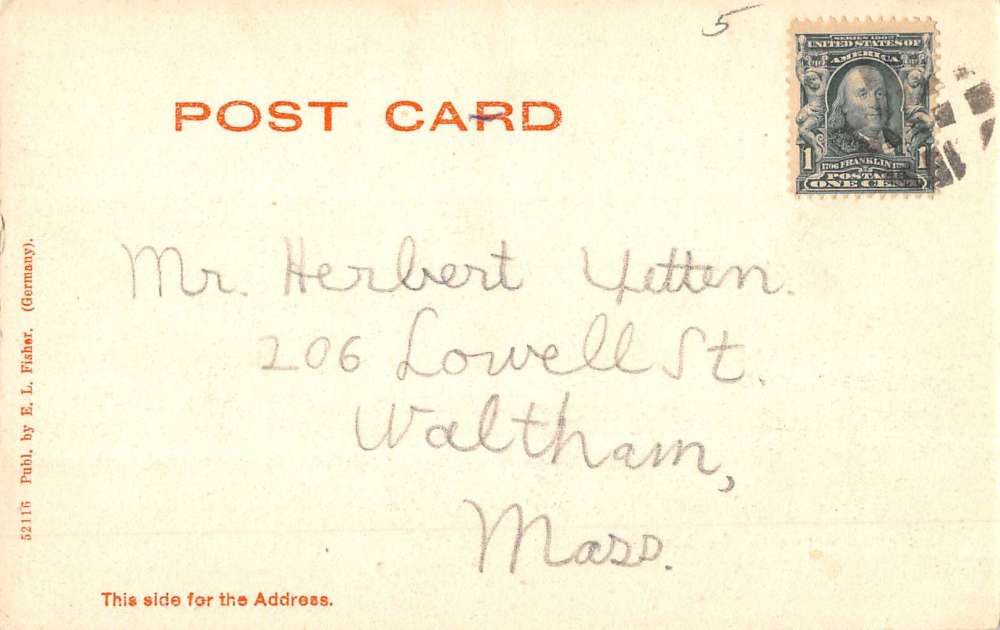 5
POST CARD
SERIES 1902
UNITED STATES OF
AMERICA
1
1706 FRANKLIN 1790
POSTAGE
ONE CENT
Mr. Herbert Yetten.
206 Lowell St.
Waltham,
Mass.
52116 Publ. by E. L. Fisher. (Germany).
This side for the Address.